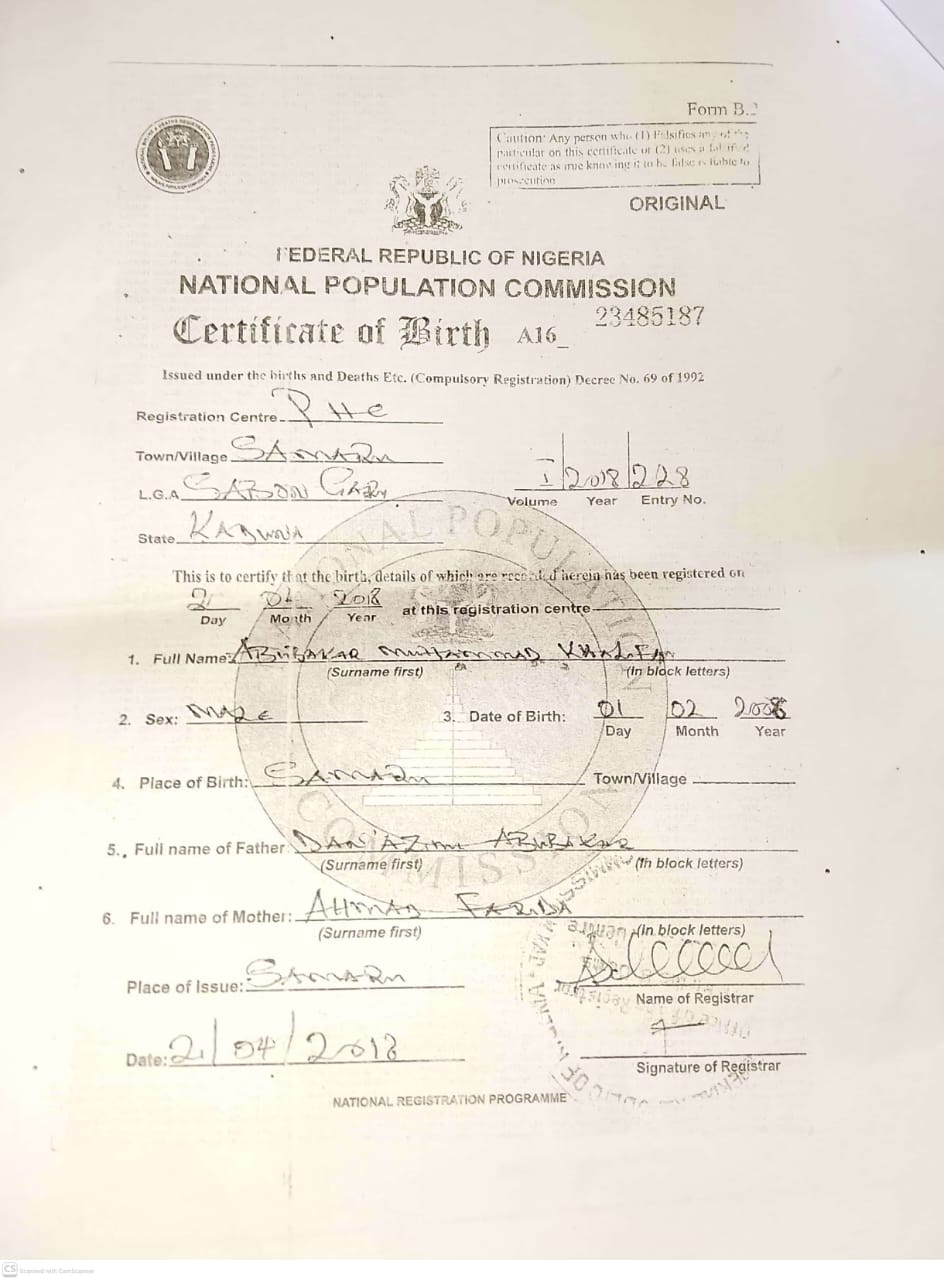 Form B.
Caution: Any person who (1) Falsifies any of the
particular on this certificate or (2) uses a falsified
certificate as true knowing it to be false is liable to
prosecution
ORIGINAL
FEDERAL REPUBLIC OF NIGERIA
NATIONAL POPULATION COMMISSION
Certificate of Birth A16_ 23485187
Issued under the births and Deaths Etc. (Compulsory Registration) Decree No. 69 of 1992
Registration Centre PHC
Town/Village SAMARU
L.G.A SABON GARI
I 2018 228
Volume Year Entry No.
State KADUNA
This is to certify that the birth, details of which are recorded herein has been registered on
04 2018 at this registration centre
Day Month Year
1. Full Name: ABUBAKAR MUHAMMAD KHALIFAH
(Surname first) (In block letters)
2. Sex: MALE 3. Date of Birth: 01 02
Day Month Year
4. Place of Birth: SAMARU Town/Village
5. Full name of Father: ABUBAKAR
(Surname first) (In block letters)
6. Full name of Mother: AHMAD FARIDA
(Surname first) (In block letters)
Place of Issue: SAMARU
Name of Registrar
Date: 04/2018
Signature of Registrar
NATIONAL REGISTRATION PROGRAMME
NATIONAL POPULATION COMMISSION
CS Scanned with CamScanner